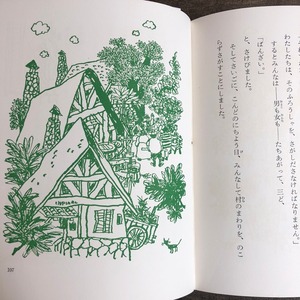 わたしたちは、そのふろうしゃを、さがしださねばなりません。」
するとみんなは――男も女も――たちあがって、三ど、
「ばんざい。」
と、さけびました。
そしてさいごに、こんどのにちよう日、みんなして村のまわりを、のこ
らずさがすことにしました。
107